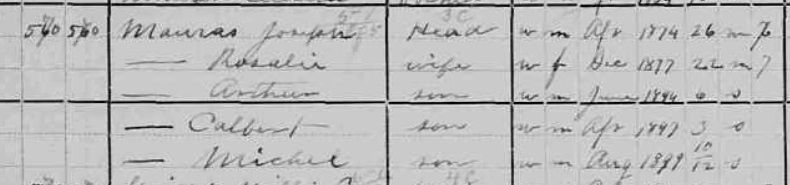 560 560 Mauras Joseph Head w m Apr 1874 26 m 7
— Rosalie wife w f Dec 1877 22 m 7
— Arthur son w m June 1894 6 s
— Colbert son w m Apr 1897 3 s
— Michel son w m Aug 1899 10/12 s